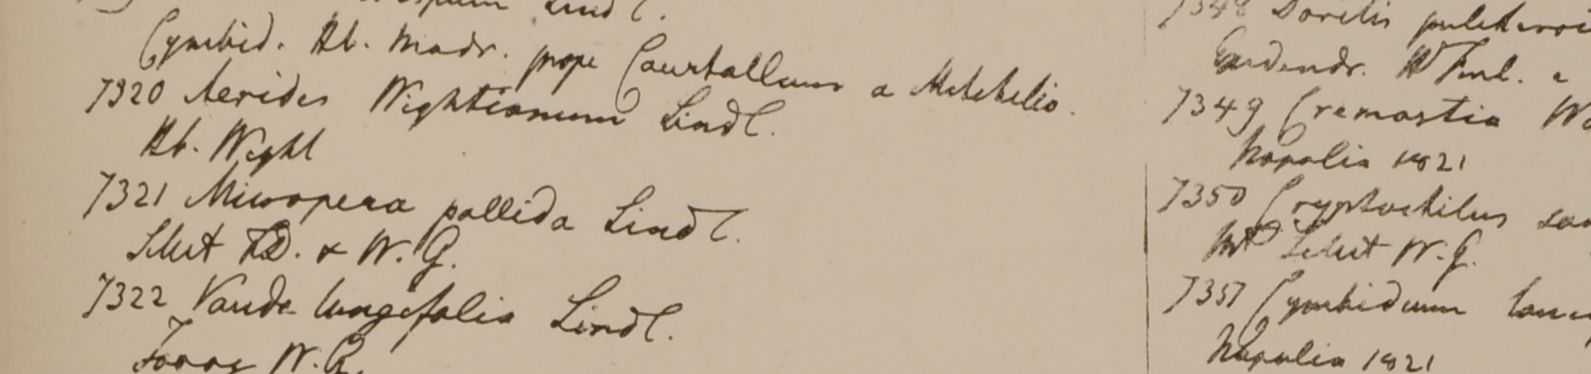 Lindl.
Cymbid. Hb. Madr. prope Courtallum a Hehelio.
7320 Aerides Wightianum Lindl.
Hb. Wight
7321 Micropera pallida Lindl.
Silhet F.D. & W.G.
7322 Vanda longifolia Lindl.
Tavoy W.G.
7348 Doritis pulcherri
Hb Finl.
7349 Cremastia Wa
Napalia 1821
7350 Cryptochilus san
Mt Silhet W.G.
7351 Cymbidium lanc
Napalia 1821